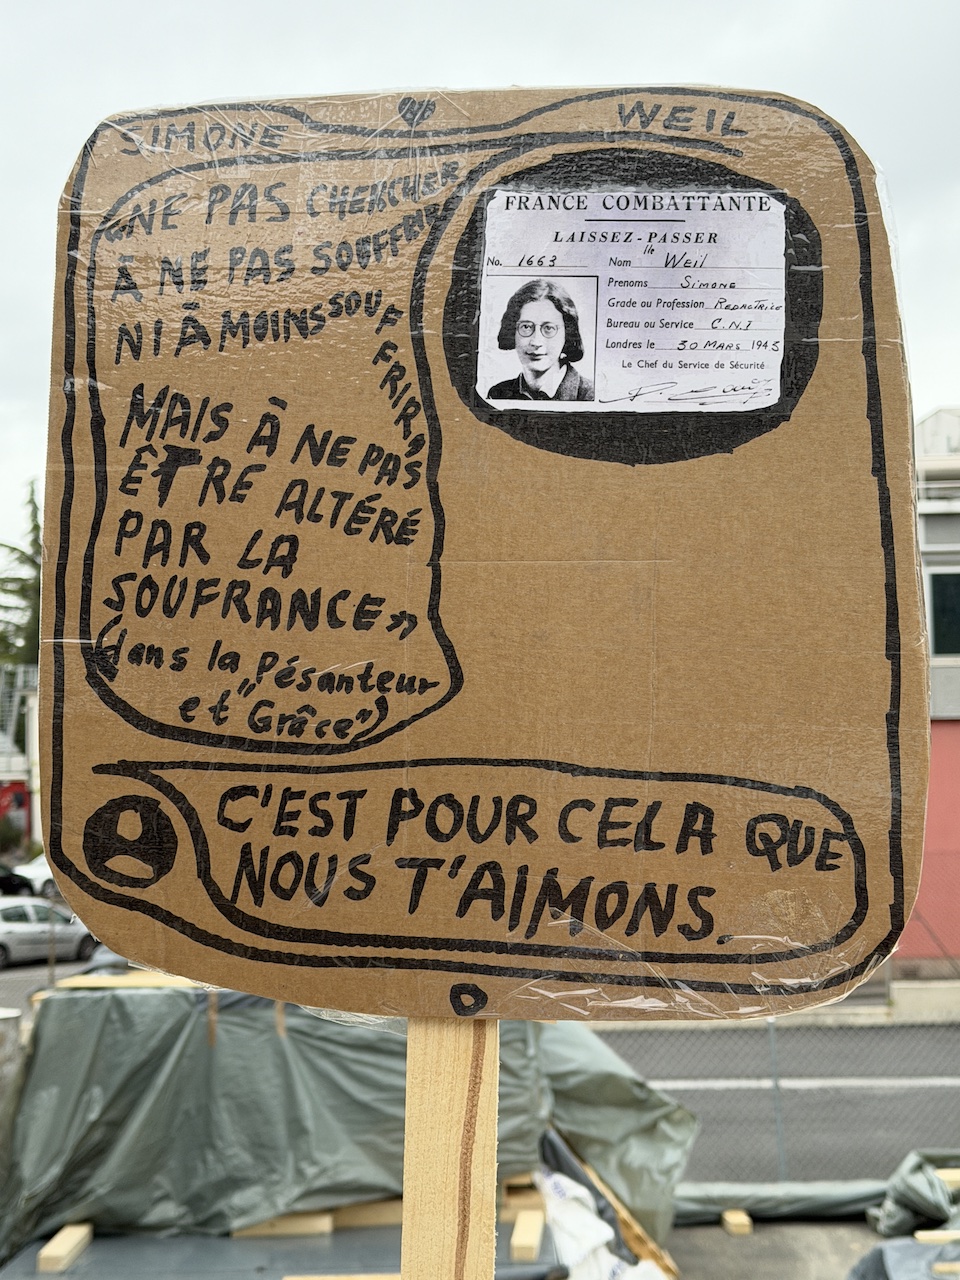 SIMONE WEIL
"NE PAS CHERCHER
À NE PAS SOUFFRIR
NI À MOINS SOUFFRIR,
MAIS À NE PAS
ÊTRE ALTÉRÉ
PAR LA
SOUFRANCE»
(dans la Pésanteur
et "Grâce")
FRANCE COMBATTANTE
LAISSEZ-PASSER
No. 1663 Nom Mlle Weil
Prenoms Simone
Grade ou Profession Redactrice
Bureau ou Service C.N.I
Londres le 30 Mars 1943
Le Chef du Service de Sécurité
C'EST POUR CELA QUE
NOUS T'AIMONS.